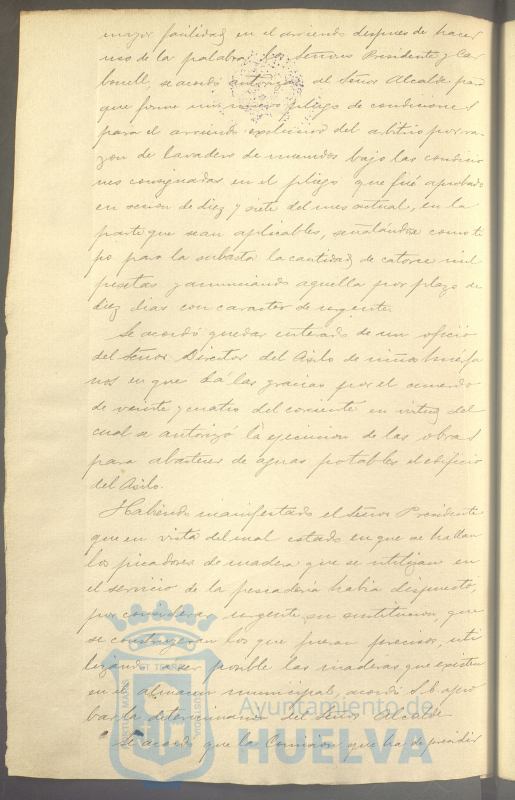 mayor facilidad en el arriendo despues de hacer
uso de la palabra los Señores Presidente y Car
bonell, se acordó autorizar al Señor Alcalde para
que forme un nuevo pliego de condiciones
para el arriendo exclusivo del arbitrio por ra
zon de lavadero de menudos bajo las condicio
nes consignadas en el pliego que fué aprobado
en sesion de diez y siete del mes actual, en la
parte que sean aplicables, señalándose como ti
po para la subasta la cantidad de catorce mil
pesetas y anunciando aquella por plazo de
diez dias con caracter de urgente.
Se acordó quedar enterado de un oficio
del Señor Director del Asilo de niños huérfa
nos en que dá las gracias por el acuerdo
de veinte y cuatro del corriente en virtud del
cual se autorizó la ejecucion de las obras
para abastecer de aguas potables el edificio
del Asilo.
Habiendo manifestado el Señor Presidente
que en vista del mal estado en que se hallan
los picadores de madera que se utilizan en
el servicio de la pescadería habia dispuesto,
por considerar urgente su sustitucion, que
se construyeran los que fueran precisos, uti
lizando a ser posible las maderas que existen
en el almacen municipal, acordó S.E. apro
bar la determinacion del Señor Alcalde
Se acordó que la Comision que ha de presidir
Ayuntamiento de
HUELVA